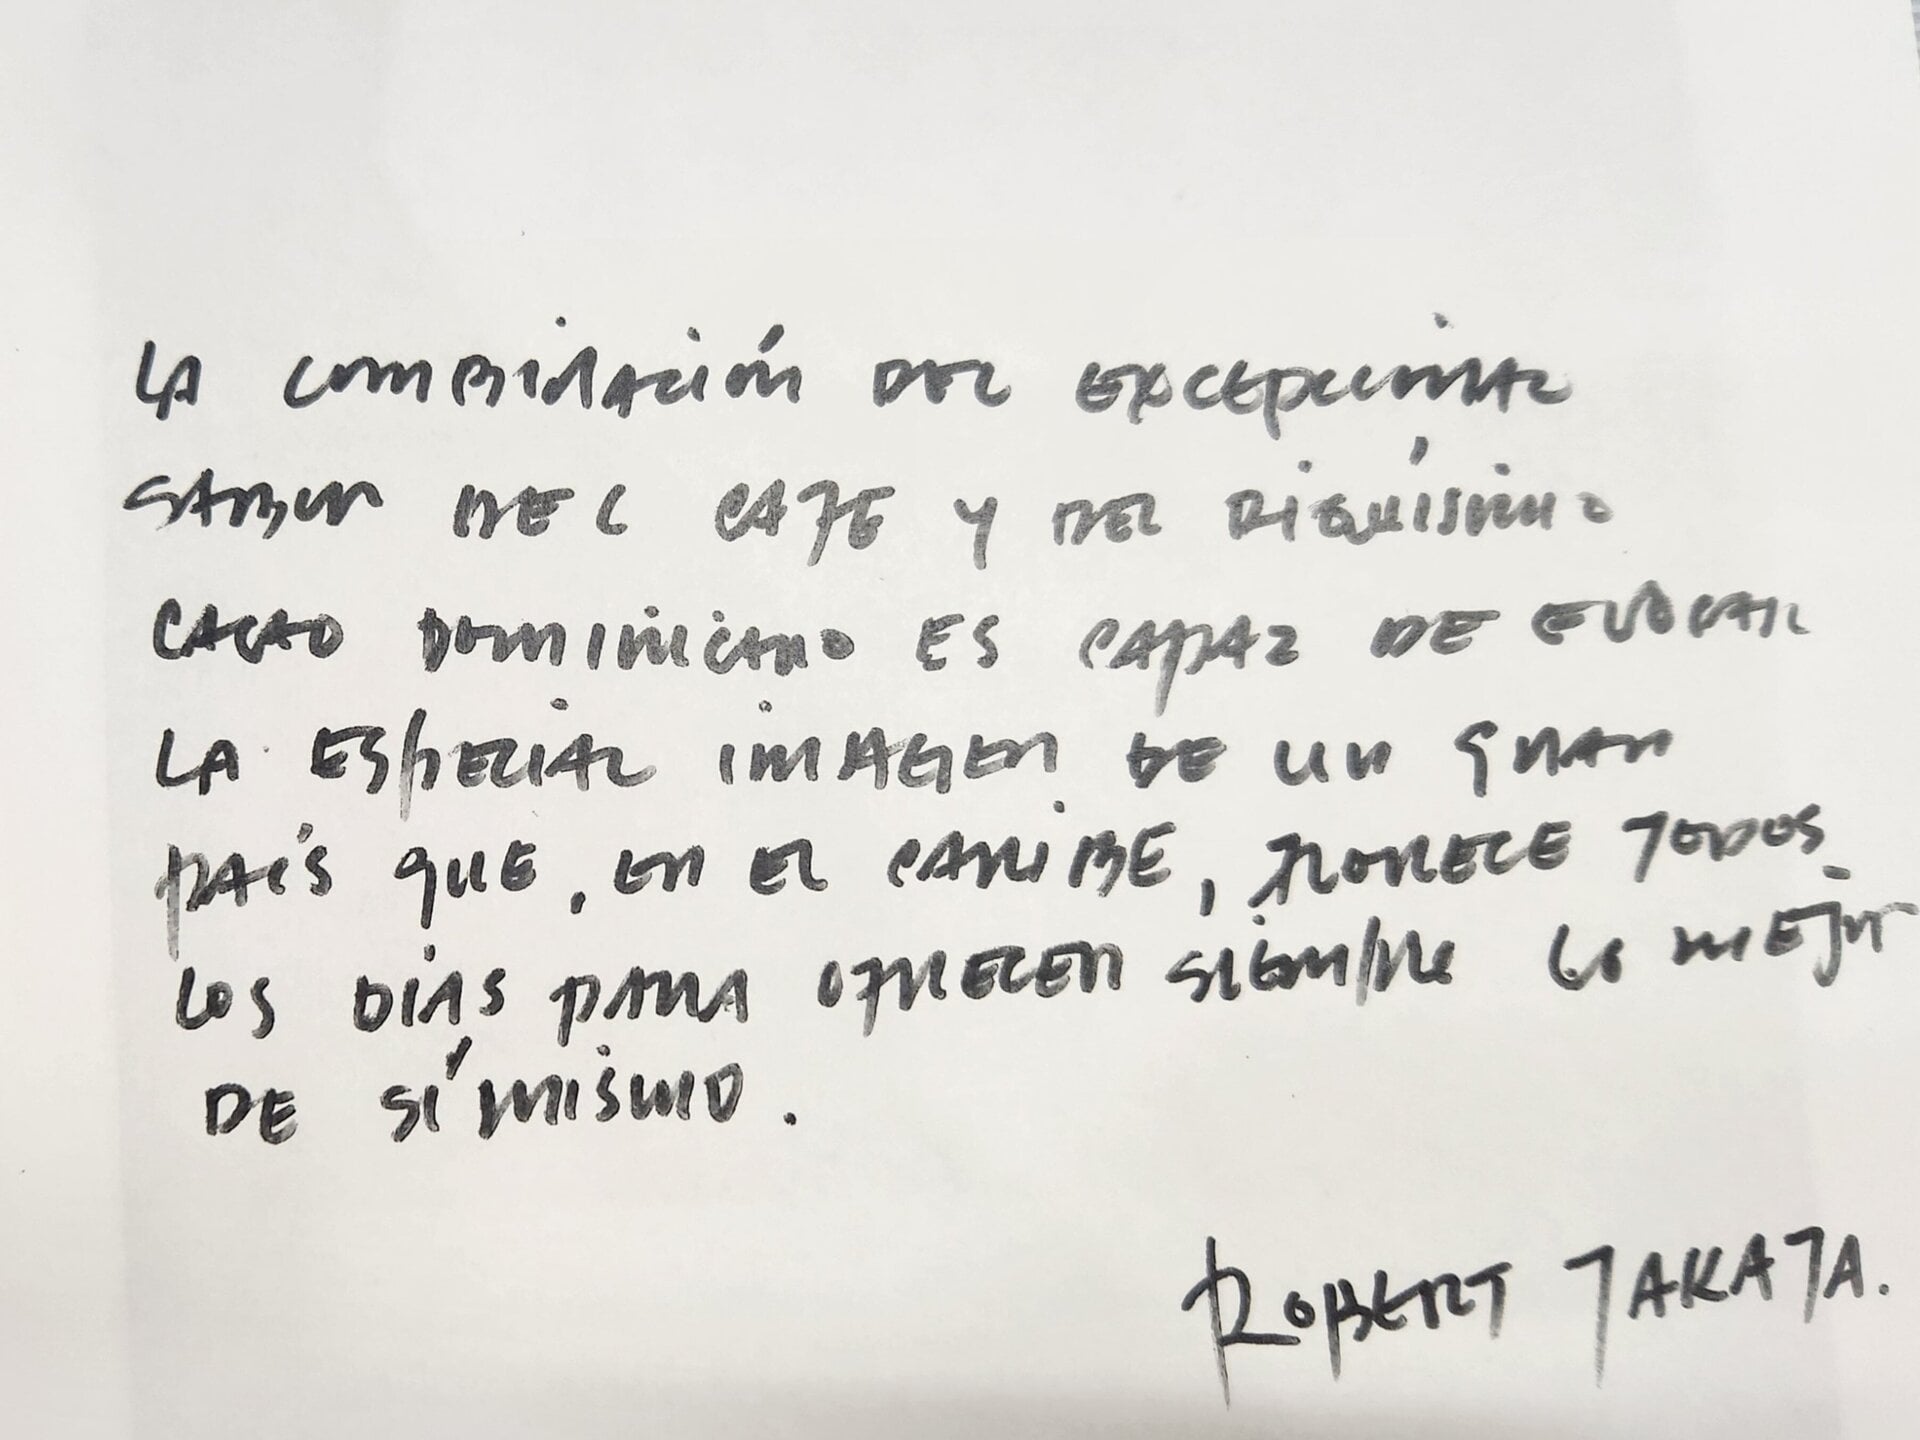 LA COMBINACIÓN DEL EXCEPCIONAL
SABOR DEL CAFE Y DEL RIQUÍSIMO
CACAO DOMINICANO ES CAPAZ DE EVOCAR
LA ESPECIAL IMAGEN DE UN GRAN
PAÍS QUE, EN EL CARIBE, FLORECE TODOS
LOS DÍAS PARA OFRECER SIEMPRE LO MEJOR
DE SÍ MISMO.
ROBERT TAKATA.